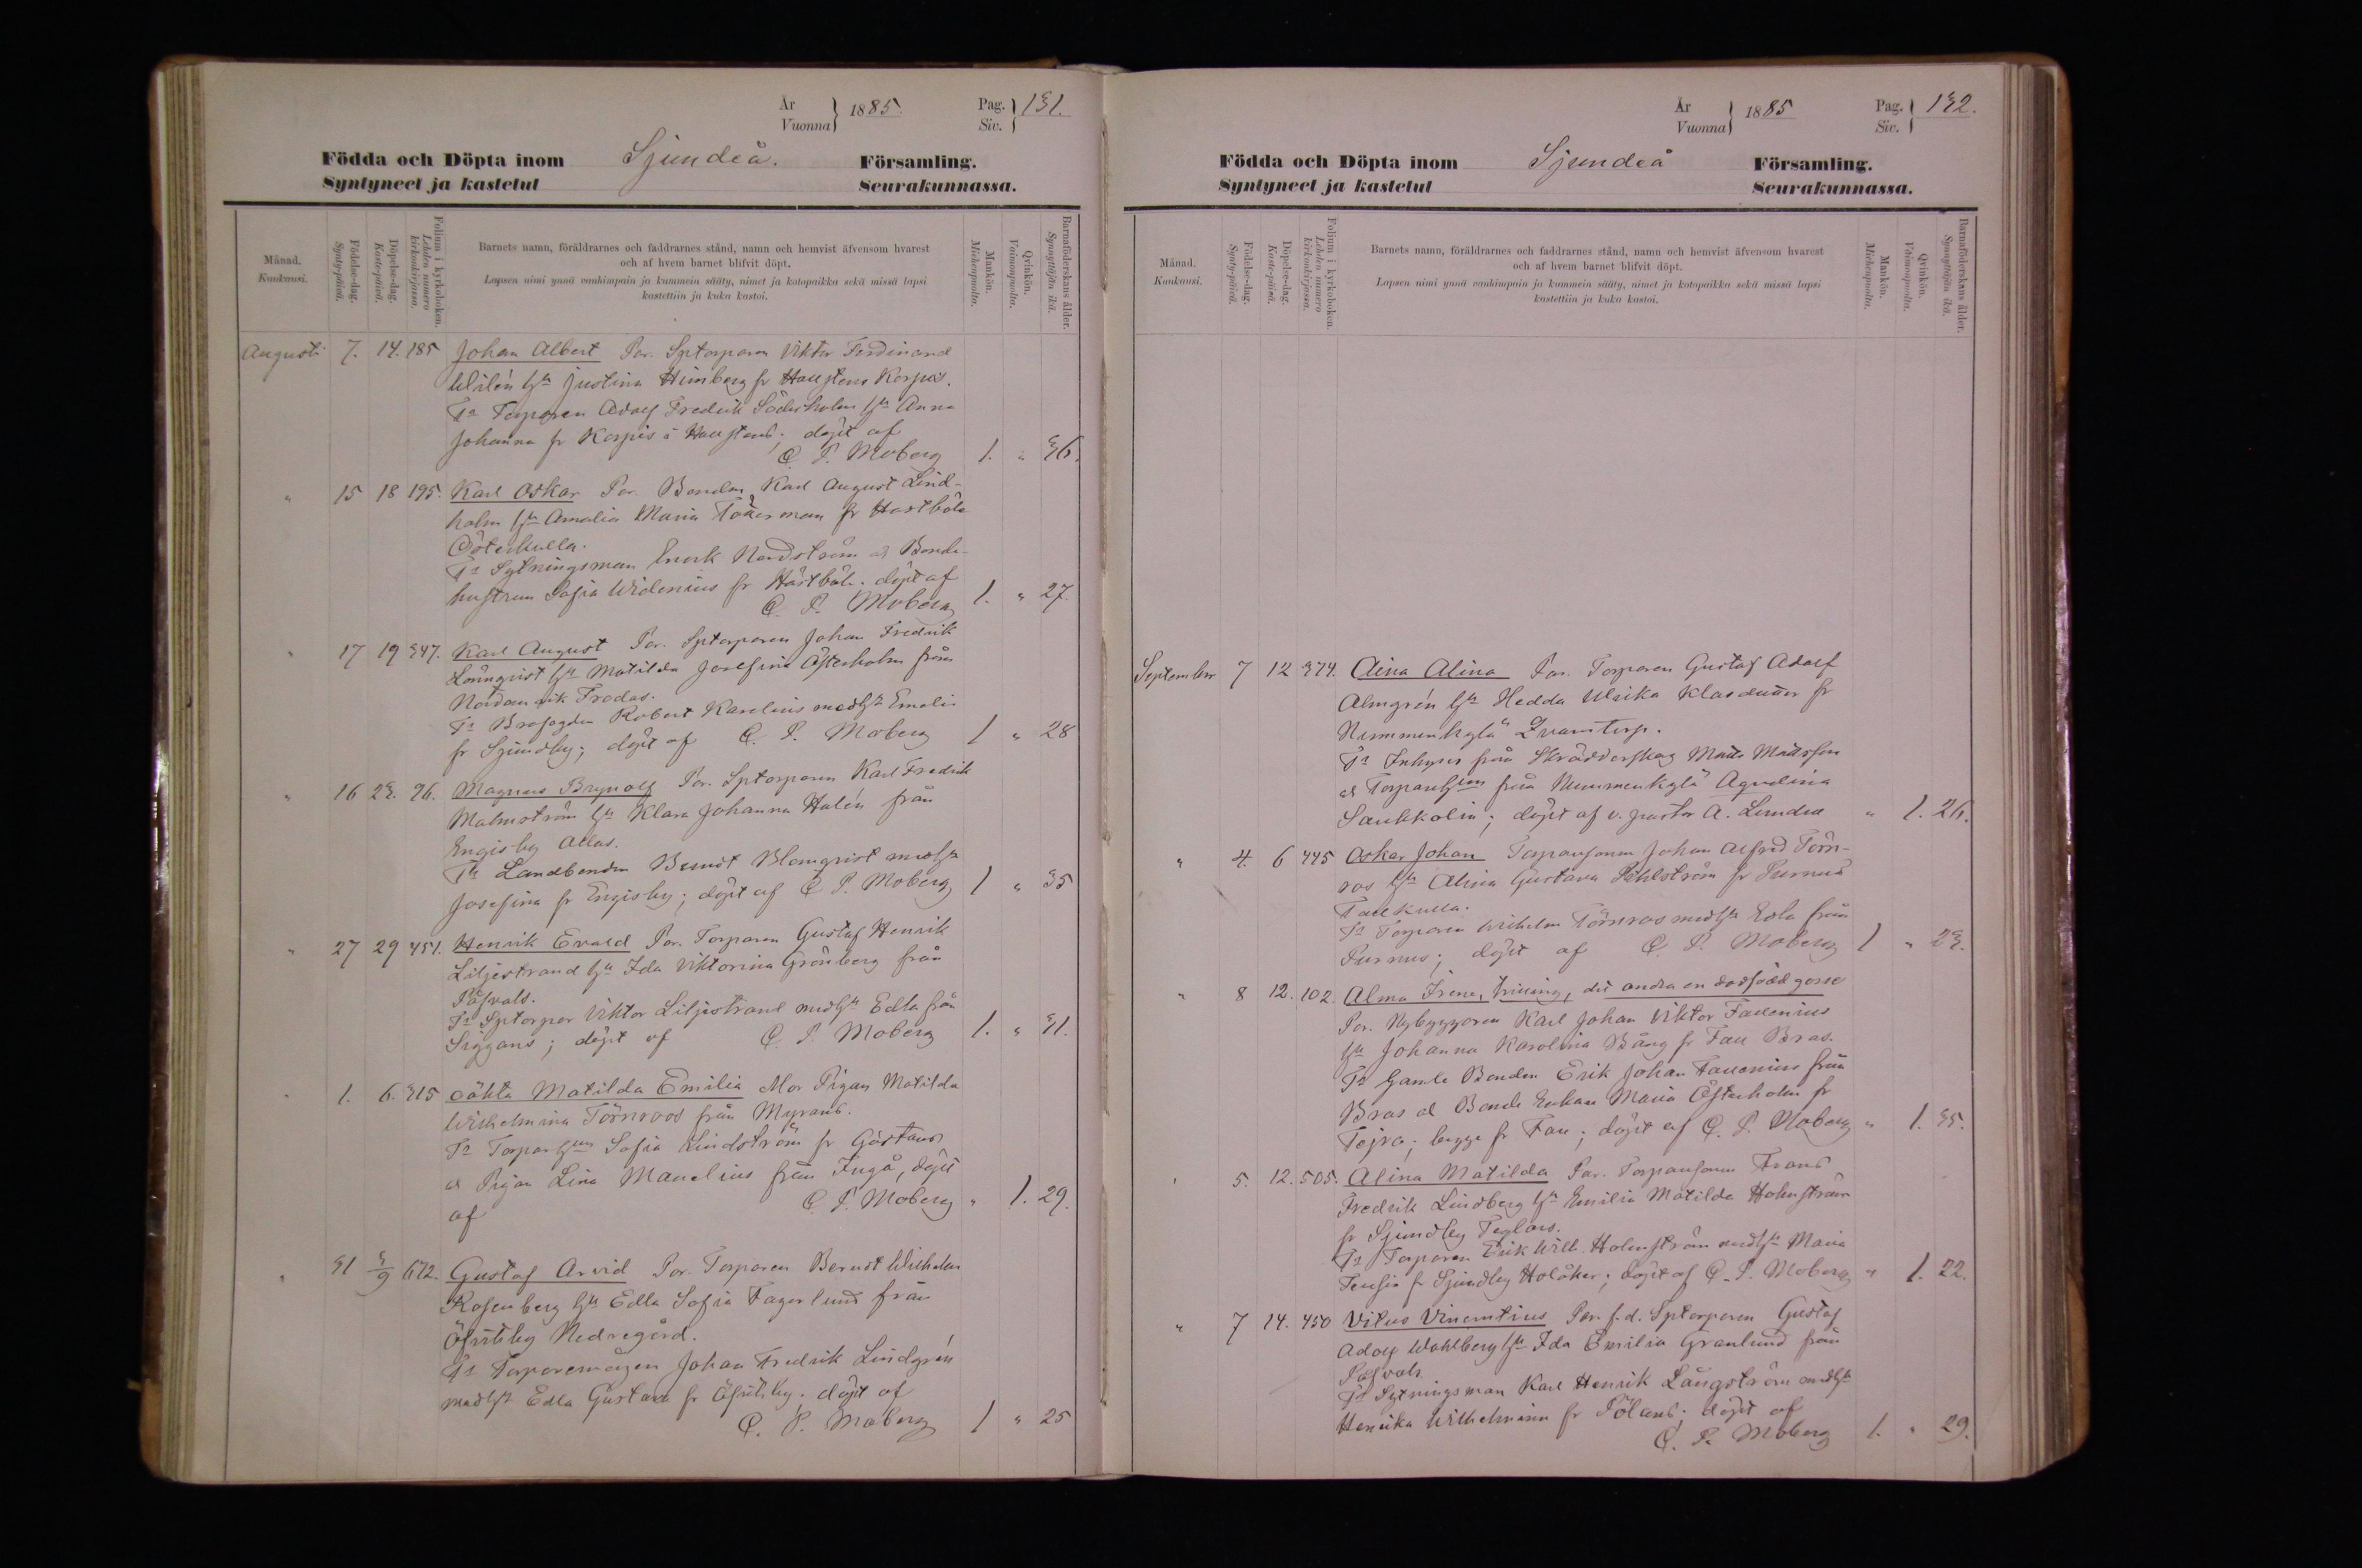 År
Vuonna
1885.
Pag.
Siv.
131.
Födda och Döpta inom Sjundeå. Församling.
Syntyneet ja kastetut Seurakunnassa.
Månad.
Kuukausi.
Födelse-dag.
Synty-päivä.
Döpelse-dag.
Kaste-päivä.
Folium i kyrkoboken.
Lehden numero kirkonkirjassa.
Barnets namn, föräldrarnes och faddrarnes stånd, namn och hemvist äfvensom hvarest
och af hvem barnet blifvit döpt.
Lapsen nimi ynnä vanhimpain ja kummein sääty, nimet ja kotopaikka sekä missä lapsi
kastettiin ja kuka kastoi.
Mankön.
Miehenpuolta.
Qvinkön.
Vaimonpuolta.
Barnaföderskans ålder.
Synnyttäjän ikä.
Augusti 7. 14. 185 Johan Albert Par. Sptorparen Viktor Ferdinand
Wilén hu Justina Himberg fr Haustens Korpis.
Fr Torparen Adolf Fredrik Söderholm hu Anna
Johanna fr Korpis i Haustens; döpt af
C. P. Moberg 1. " 36.
" 15 18 195. Karl Oskar Par. Bonden Karl August Lind-
holm hu Amalia Maria Tåkerman fr Hästböle
Österkulla.
Fr Sytningsman Enock Nordström o Bonde-
hustrun Sofia Widenius fr Hästböle. döpt af
C. P. Moberg 1. " 27.
" 17 19 347. Karl August Par. Sptorparen Johan Fredrik
Lönnqvist hu Matilda Josefina Österholm från
Nordanvik Frodas.
Fr Brofogden Robert Karelius med hu Emelie
fr Sjundby; döpt af C. P. Moberg 1 " 28
" 16 23. 76. Magnus Brynolf Par. Sptorparen Karl Fredrik
Malmström hu Klara Johanna Halén från
Engisby Allas.
Fr Landbonden Berndt Blomqvist med hu
Josefina fr Engisby; döpt af C P. Moberg 1 " 35
" 27 29 451. Henrik Evald Par. Torparen Gustaf Henrik
Liljestrand hu Ida Viktorina Grönberg från
Påfvals.
Fr Sptorpar Viktor Liljestrand med hu Edla från
Siggans; döpt af C. P. Moberg 1. " 31.
" 1. 6. 315 oäkta Matilda Emilia Mor Pigan Matilda
Wilhelmina Törnroos från Myrans.
Fr Torparhun Sofia Lindström fr Göstans
o Pigan Lina Manelius från Ingå, döpt
af C. P. Moberg " 1. 29.
" 31 3/9 672. Gustaf Arvid Par. Torparen Berndt Wilhelm
Rosenberg hu Edla Sofia Fagerlund från
Öfvitsby Nedregård.
Fr Torparemågen Johan Fredrik Lindgrén
med hu Edla Gustava fr Öfvitsby; döpt af
C. P. Moberg 1 " 25
År
Vuonna
1885
Pag.
Siv.
132.
Födda och Döpta inom Sjundeå Församling.
Syntyneet ja kastetut Seurakunnassa.
Månad.
Kuukausi.
Födelse-dag.
Synty-päivä.
Döpelse-dag.
Kaste-päivä.
Folium i kyrkoboken.
Lehden numero kirkonkirjassa.
Barnets namn, föräldrarnes och faddrarnes stånd, namn och hemvist äfvensom hvarest
och af hvem barnet blifvit döpt.
Lapsen nimi ynnä vanhimpain ja kummein sääty, nimet ja kotopaikka sekä missä lapsi
kastettiin ja kuka kastoi.
Mankön.
Miehenpuolta.
Qvinkön.
Vaimonpuolta.
Barnaföderskans ålder.
Synnyttäjän ikä.
September 7 12 374. Aina Alina Par. Torparen Gustaf Adolf
Almgrén hu Hedda Ulrika Klasdotter fr
Nummenkylä Qvarntorp.
Fr Inhyses från Skrädderskog Mats Matsson
o Torparhun från Nummenkylä Agnelina
Saukkolin; döpt af v. pastor A. Lunden " 1. 26.
" 4. 6 445 Oskar Johan Torparsonen Johan Alfred Törn-
ros hu Alina Gustava Pihlström fr Purnus
Tallkulla.
Fr Torparen Wilhelm Törnros med hu Edla från
Purnus; döpt af C. P. Moberg 1 " 23.
" 8 12. 102. Alma Irene, tvilling, det andra en dödfödd gosse
Par. Nybyggaren Karl Johan Viktor Fallenius
hu Johanna Karolina Bång fr Fall Bras.
Fr Gamle Bonden Erik Johan Fallenius från
Bras o Bonde Enkan Maria Österholm fr
Tojro; begge fr Fall; döpt af C. P. Moberg " 1. 35.
" 5. 12. 505. Alina Matilda Par. Torparsonen Frans
Fredrik Lindberg hu Emilia Matilda Holmström
fr Sjundby Teglars.
Fr Torparen Erik Wilh. Holmström med hu Maria
Fensia fr Sjundby Holåker; döpt af C. P. Moberg " 1. 22.
" 7 14. 450 Vitus Vincentius Par. f.d. Sptorparen Gustaf
Adolf Wahlberg hu Ida Emilia Granlund från
Påfvals.
Fr Sytningsman Karl Henrik Långström med hu
Henrika Wilhelmina fr Pölans; döpt af
C. P. Moberg 1. " 29.